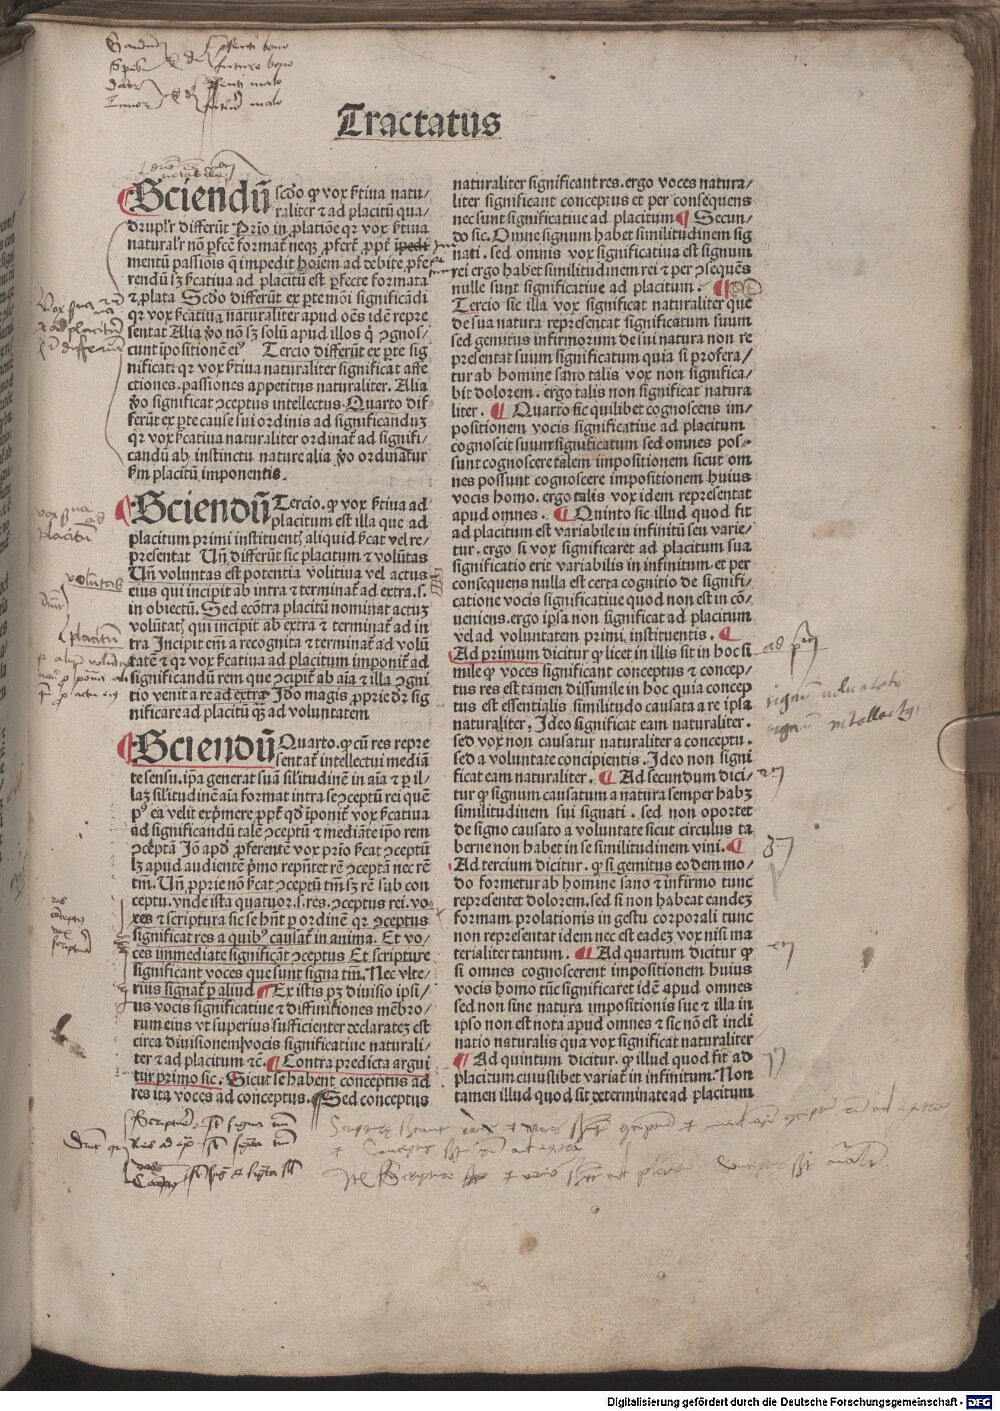 Tractatus
Sciendũ scďo ꝙ vox ẜtiua natu/
raliter ⁊ ad placitũ qua/
drupl'r differũt Prio in ꝓlatiõe qꝛ vox ẜtiua
naturalr̃ nõ ꝑfcẽ format̃ neqꝫ ꝓfert̃ ꝓpt̃ ipedi
mentũ passiõis q̃ impedit hoĩem ad debite ꝓfe
rendũ sꝫ ẜcatiua ad placitũ est ꝑfecte formata
⁊ ꝓlata Scďo differũt ex ꝑte mõi significãdi
qꝛ vox ẜcatiua naturaliter apud oẽs idẽ repre
sentat Alia ꝟo nõ sꝫ solũ apud illos q̃ ↄgnos/
cunt ĩpositionẽ eiꝰ Tercio differũt ex ꝑte sig
nificati qꝛ vox ẜtiua naturaliter significat affe
ctiones. passiones appetitus naturaliter. Alia
ꝟo significat ↄceptus intellectus. Quarto dif/
ferũt ex ꝑte cause sui ordinis ad significanduꝫ
qꝛ vox ẜcatiua naturaliter ordinat̃ ad signifi/
candũ ab instinctu nature alia ꝟo ordinatur
ẜm placitũ imponentis.
Sciendũ Tercio. ꝙ vox ẜtiua ad
placitum est illa que ad
placitum primi instituentꝭ aliquid ẜcat vel re/
presentat Un̄ differũt sic placitum ⁊ volũtas
Un̄ voluntas est potentia volitiua vel actus
eius qui incipit ab intra ⁊ terminat̃ ad extra. s.
in obiectũ. Sed ecõtra placitũ nominat actuꝫ
volũtatꝭ qui incipit ab extra ⁊ terminat̃ ad in
tra Incipit em̃ a re cognita ⁊ terminat̃ ad volũ
tatẽ ⁊ qꝛ vox ẜcatiua ad placitum imponit̃ ad
significandũ rem que ↄcipit̃ ab aĩa ⁊ illa ↄgni
tio venit a re ad extra Iďo magis ꝓprie dr̃ sig
nificare ad placitũ qꝫ̃ ad voluntatem
Sciendũ Quarto. ꝙ cũ res repre
sentat̃ intellectui mediã
te sensu. ip̃a generat suã silitudinẽ in aĩa ⁊ ꝑ il/
laꝫ silitudinẽ aĩa format intra se ↄceptũ rei quẽ
pꝰ ea velit exp̃mere ꝓpt̃ qď ĩponit̃ vox ẜcatiua
ad significandũ talẽ ↄceptũ ⁊ mediãte ip̃o rem
ↄceptã Iõ apď ꝓferentẽ vox prĩo ẜcat ↄceptũ
lꝫ apud audientẽ p̃mo rep̃ntet rẽ ↄceptã nec rẽ
tm̃. Un̄ ꝓprie nõ ẜcat ↄceptũ tm̃ sꝫ rẽ sub con
ceptu. vnde ista quatuor. s. res. ↄceptus rei. vo/
xes ⁊ scriptura sic se hñt ꝑ ordinẽ qꝛ ↄceptus
significat res a quibꝰ causat̃ in anima. Et vo/
ces immediate significãt ↄceptus Et scripture
significant voces que sunt signa tm̃. Nec vlte/
rius signat̃ ꝑ aliud ¶ Ex istis pꝫ diuisio ipsi/
us vocis significatiue ⁊ diffinitiones mẽbro/
rum eius vt superius sufficienter declarateꝫ est
circa diuisionem vocis significatiue naturali/
ter ⁊ ad placitum ⁊c̃. ¶ Contra predicta argui
tur primo sic. Sicut se habent conceptus ad
res ita voces ad conceptus. ¶ Sed conceptus
naturaliter significant res. ergo voces natura/
liter significant conceptus et per consequens
nec sunt significatiue ad placitum ¶ Secun/
do sic. Omne signum habet similitudinem sig
nati. sed omnis vox significatiua est signum
rei ergo habet similitudinem rei ⁊ per ↄsequẽs
nulle sunt significatiue ad placitum. ¶
Tercio sic illa vox significat naturaliter que
de sua natura representat significatum suum
sed gemitus infirmorum de sui natura non re
presentat suum significatum quia si profera/
tur ab homine sano talis vox non significa/
bit dolorem. ergo talis non significat natura
liter. ¶ Quarto sic quilibet cognoscens im/
positionem vocis significatiue ad placitum
cognoscit suum significatum sed omnes pos/
sunt cognoscere talem impositionem sicut om
nes possunt cognoscere impositionem huius
vocis homo. ergo talis vox idem representat
apud omnes. ¶ Quinto sic illud quod fit
ad placitum est variabile in infinitũ seu varie/
tur. ergo si vox significaret ad placitum sua
significatio erit variabilis in infinitum. et per
consequens nulla est certa cognitio de signifi/
catione vocis significatiue quod non est in cõ/
ueniens. ergo ipsa non significat ad placitum
vel ad voluntatem primi instituentis. ¶
Ad primum dicitur ꝙ licet in illis sit in hoc si
mile ꝙ voces significant conceptus ⁊ concep/
tus res est tamen dissimile in hoc quia concep
tus est essentialis similitudo causata a re ipsa
naturaliter. Ideo significat eam naturaliter.
sed vox non causatur naturaliter a conceptu.
sed a voluntate concipientis. Ideo non signi
ficat eam naturaliter. ¶ Ad secundum dici/
tur ꝙ signum causatum a natura semper habꝫ
similitudinem sui signati. sed non oportet
de signo causato a voluntate sicut circulus ta
berne non habet in se similitudinem vini. ¶
Ad tercium dicitur. ꝙ si gemitus eodem mo/
do formetur ab homine sano ⁊ infirmo tunc
representet dolorem. sed si non habeat eandeꝫ
formam prolationis in gestu corporali tunc
non representat idem nec est eadeꝫ vox nisi ma
terialiter tantum. ¶ Ad quartum dicitur ꝙ
si omnes cognoscerent impositionem huius
vocis homo tũc significaret idẽ apud omnes
sed non sine natura impositionis sue ⁊ illa in
ipso non est nota apud omnes ⁊ sic nõ est incli
natio naturalis qua vox significat naturaliter
¶ Ad quintum dicitur. ꝙ illud quod fit̃ ad
placitum cuiuslibet variat̃ in infinitum. Non
tamen illud quod sit determinate ad placitum
Digitalisierung gefördert durch die Deutsche Forschungsgemeinschaft - DFG